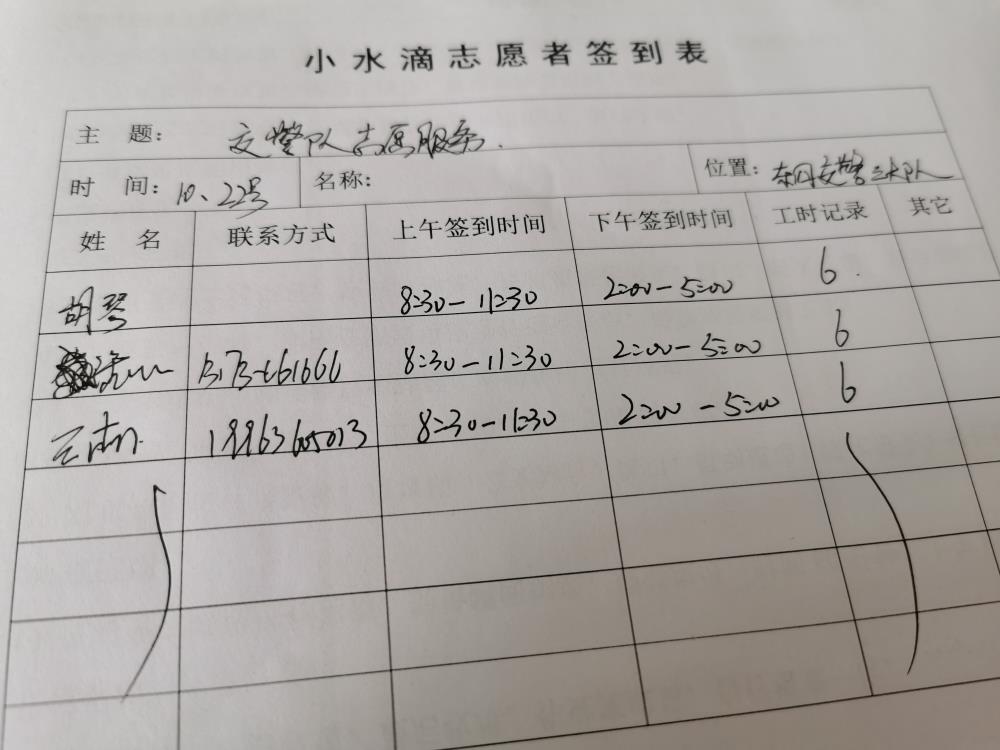 小水滴志愿者签到表
主 题: 交警队志愿服务.
时 间: 10、22号 名称: 位置: 交警三大队
姓 名 联系方式 上午签到时间 下午签到时间 工时记录 其它
胡琴 8:30-11:30 2:00-5:00 6
8:30-11:30 2:00-5:00 6
8:30-11:30 2:00-5:00 6